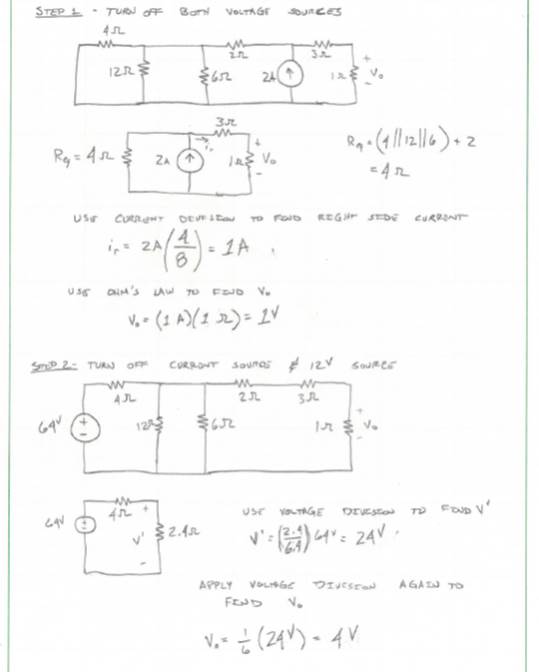 STEP 1 - TURN OFF BOTH VOLTAGE SOURCES
4Ω
2Ω
3Ω
12Ω
6Ω
2A
1Ω
+
Vo
-
3Ω
Rq = 4Ω
2A
ir
1Ω
+
Vo
-
Rq = (4||12||6) + 2
= 4Ω
USE CURRENT DIVISION TO FIND RIGHT SIDE CURRENT
ir = 2A(4/8) = 1A
USE OHM'S LAW TO FIND Vo
Vo = (1 A)(1 Ω) = 1V
STEP 2 - TURN OFF CURRENT SOURCE & 12V SOURCE
4Ω
2Ω
3Ω
64V
+
-
12Ω
6Ω
1Ω
+
Vo
-
64V
+
-
4Ω
+
V'
-
2.4Ω
USE VOLTAGE DIVISION TO FIND V'
V' = (2.4/6.4) 64V = 24V
APPLY VOLTAGE DIVISION AGAIN TO
FIND Vo
Vo = 1/6 (24V) = 4V